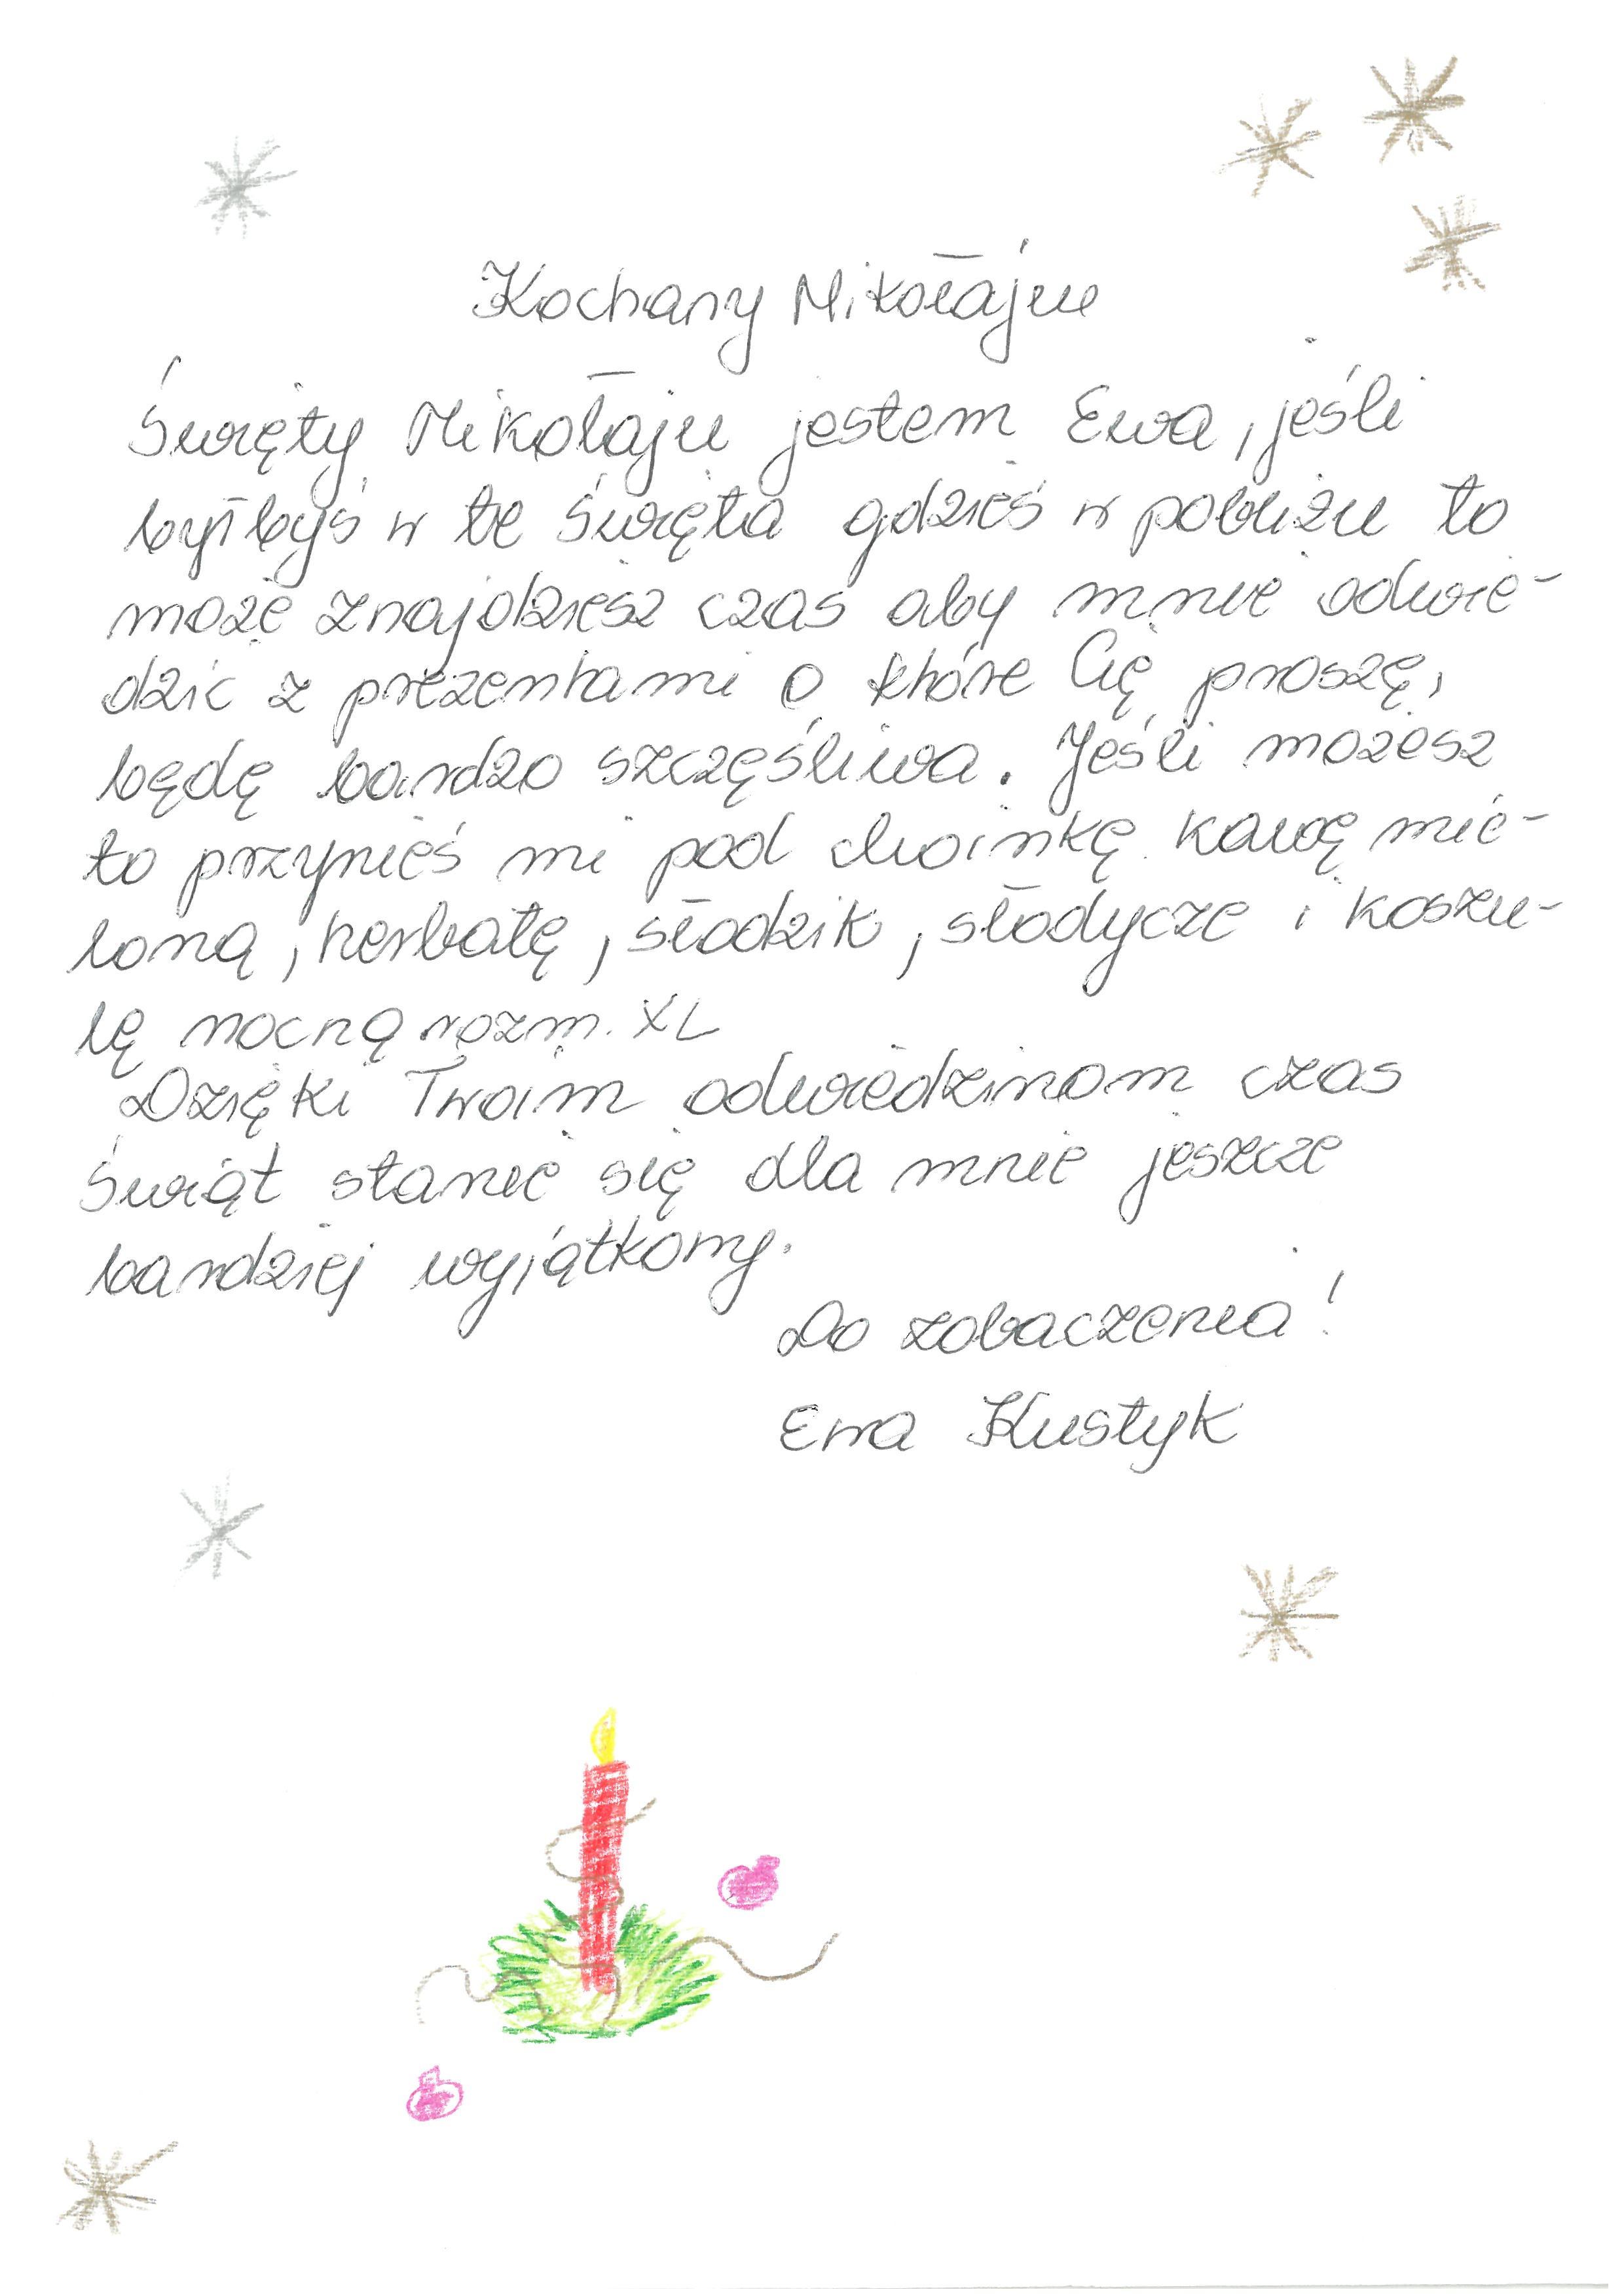 Kochany Mikołaju
Święty Mikołaju jestem Ewa, jeśli
byłbyś w te Święta gdzieś w pobliżu to
może znajdziesz czas aby mnie odwie-
dzić z prezentami o które Cię proszę,
będę bardzo szczęśliwa. Jeśli możesz
to przynieś mi pod choinkę kawę mie-
loną, herbatę, słodzik, słodycze i koszu-
lę nocną rozm. XL
Dzięki Twoim odwiedzinom czas
Świąt stanie się dla mnie jeszcze
bardziej wyjątkowy.
Do zobaczenia!
Ewa Kustyk